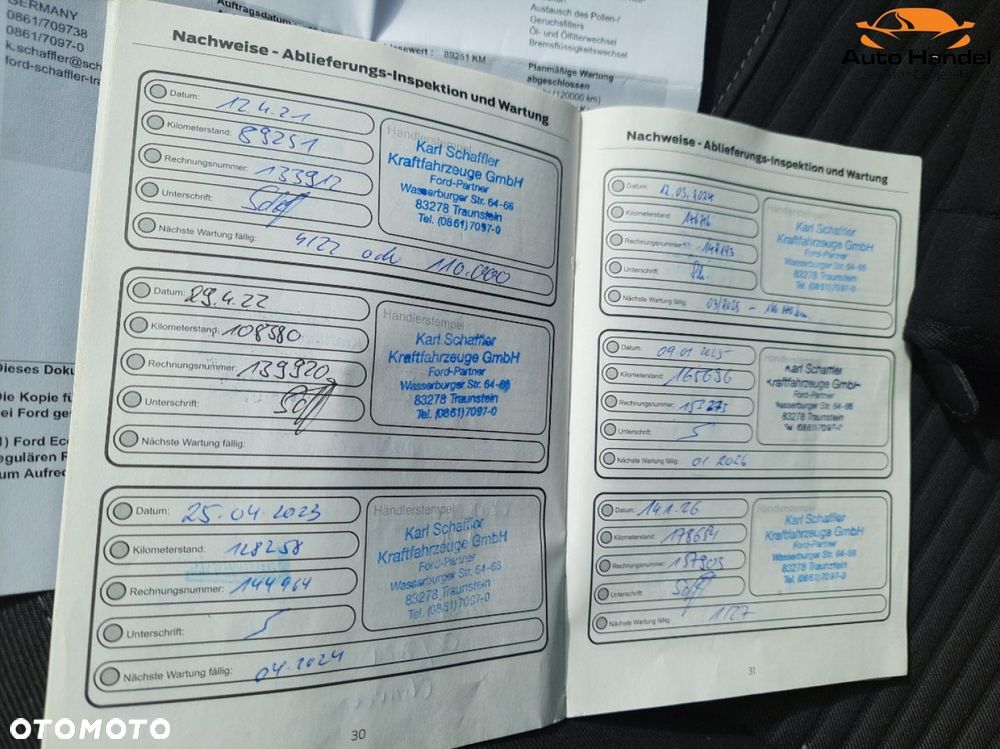 GERMANY
0861/709738
0861/7097-0
k.schaffler@sch
ford-schaffler-tra
Auftragsdatum
89251 KM
Austausch des Pollen-/
Geruchsfilters
Öl- und Ölfilterwechsel
Bremsflüssigkeitswechsel
Planmäßige Wartung
abgeschlossen
(120000 km)
Auto Handel
Dieses Doku
Die Kopie fü
bei Ford ge
1) Ford Eco
regulären
um Aufrec
Nachweise - Ablieferungs-Inspektion und Wartung
Datum: 12.4.21
Kilometerstand: 89251
Rechnungsnummer: 133912
Unterschrift:
Nächste Wartung fällig: 4/22 ode 110.000
Händlerstempel
Karl Schaffler
Kraftfahrzeuge GmbH
Ford-Partner
Wasserburger Str. 64-66
83278 Traunstein
Tel. (0861)7097-0
Datum: 29.4.22
Kilometerstand: 108580
Rechnungsnummer: 139920
Unterschrift:
Nächste Wartung fällig:
Händlerstempel
Karl Schaffler
Kraftfahrzeuge GmbH
Ford-Partner
Wasserburger Str. 64-66
83278 Traunstein
Tel. (0861)7097-0
Datum: 25.04.2023
Kilometerstand: 128258
Rechnungsnummer: 144964
Unterschrift:
Nächste Wartung fällig: 04.2024
Händlerstempel
Karl Schaffler
Kraftfahrzeuge GmbH
Ford-Partner
Wasserburger Str. 64-66
83278 Traunstein
Tel. (0861)7097-0
30
Nachweise - Ablieferungs-Inspektion und Wartung
Datum: 12.03.2024
Kilometerstand:
Rechnungsnummer: 149193
Unterschrift:
Nächste Wartung fällig: 03/2025 -
Karl Schaffler
Kraftfahrzeuge GmbH
Ford-Partner
Wasserburger Str. 64-66
83278 Traunstein
Tel. (0861)7097-0
Datum: 09.01.2025
Kilometerstand: 165696
Rechnungsnummer: 152273
Unterschrift:
Nächste Wartung fällig: 01.2026
Karl Schaffler
Kraftfahrzeuge GmbH
Ford-Partner
Wasserburger Str. 64-66
83278 Traunstein
Tel. (0861)7097-0
Datum: 14.1.26
Kilometerstand: 178654
Rechnungsnummer: 157903
Unterschrift:
Nächste Wartung fällig: 1/27
Händlerstempel
Karl Schaffler
Kraftfahrzeuge GmbH
Ford-Partner
Wasserburger Str. 64-66
83278 Traunstein
Tel. (0861)7097-0
31
OTOMOTO